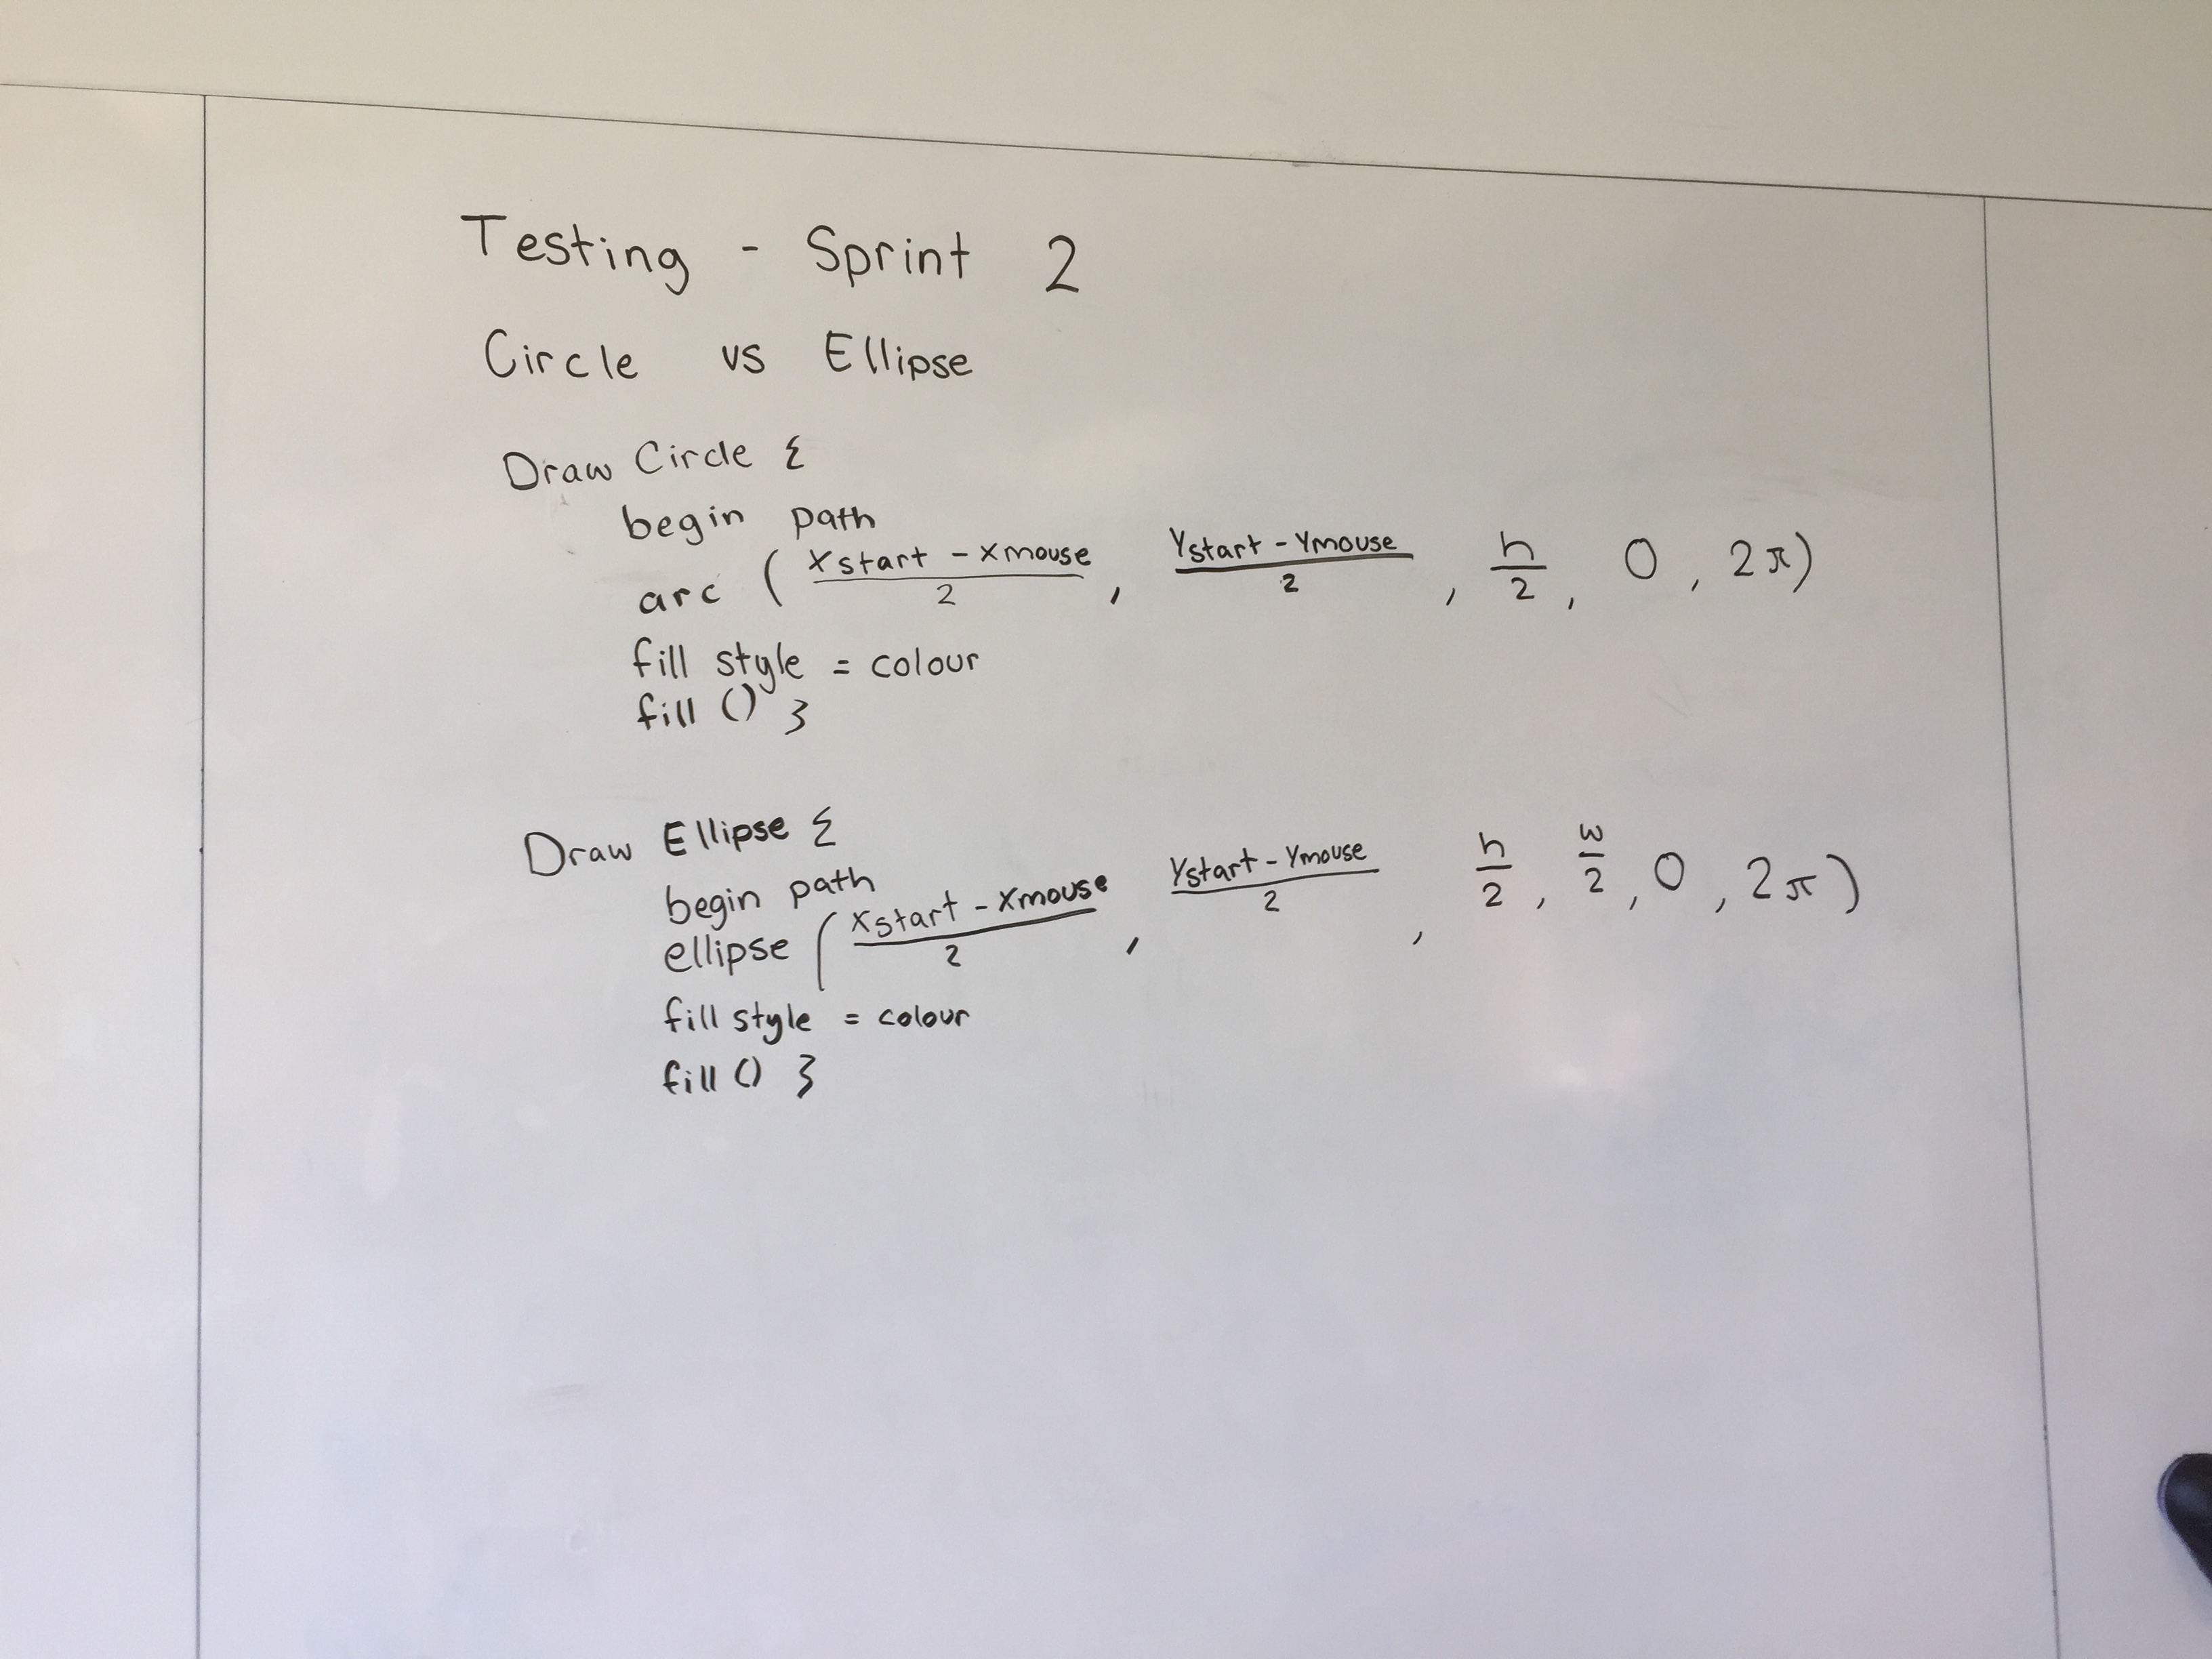 Testing - Sprint 2
Circle vs Ellipse
Draw Circle {
begin path
arc ( (Xstart - Xmouse)/2 , (Ystart - Ymouse)/2 , h/2 , 0 , 2π)
fill style = colour
fill () }
Draw Ellipse {
begin path
ellipse ( (Xstart - Xmouse)/2 , (Ystart - Ymouse)/2 , h/2 , w/2 , 0 , 2π )
fill style = colour
fill () }